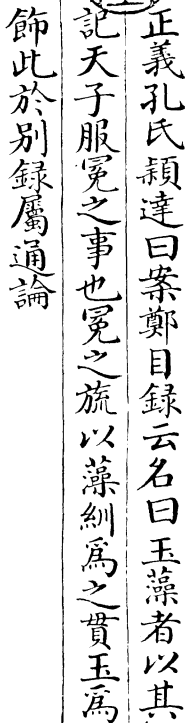 正義孔氏穎達曰案鄭目録云名曰玉藻者以其
記天子服冕之事也冕之旒以藻紃爲之貫玉爲
飾此於别録屬通論